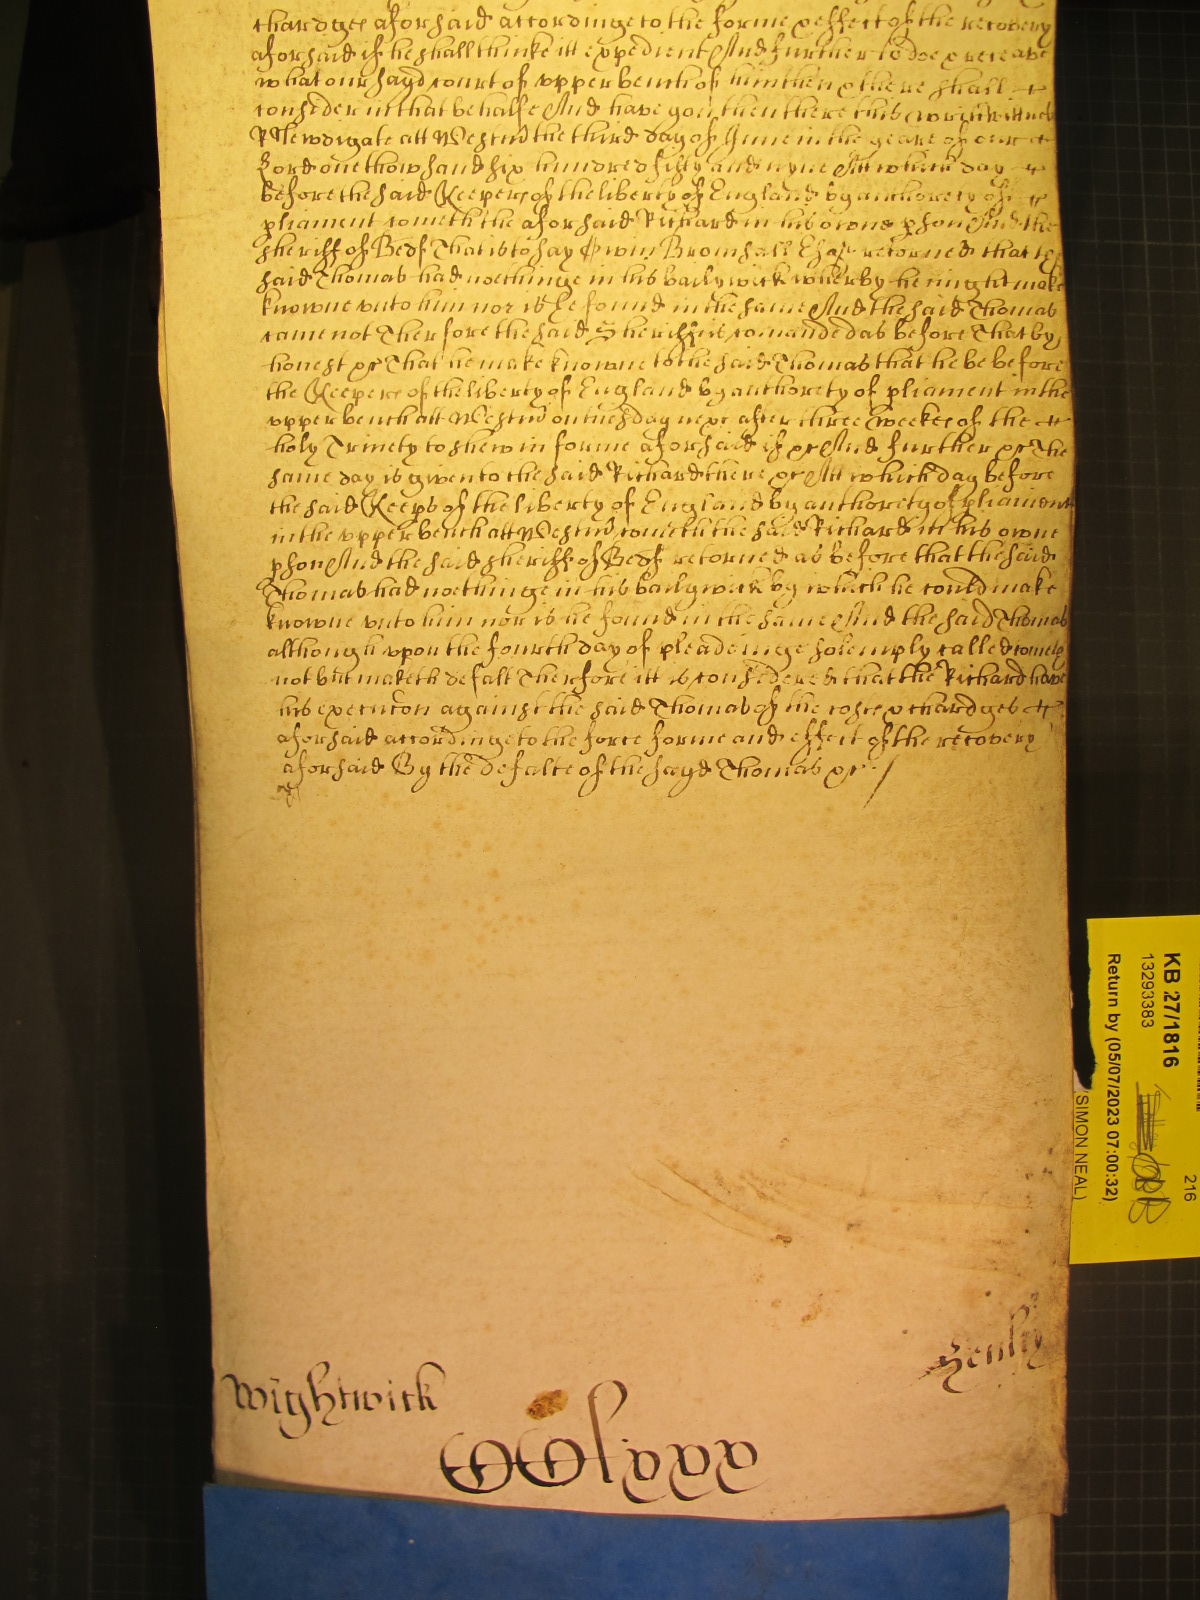 chardges aforsaid accordinge to the forme & effect of the recovery
aforsaid if he shall thinke itt expedient And further to doe & receave
what our sayd court of upper bench of him then & there shall
consider in that behalfe And have you then there this writt wittnes
R Newdigate att Westm the third day of June in the yeare of our
Lord one thowsand six hundred fifty and nyne Att which day
before the said Keepers of the liberty of England by authorety of
pliament cometh the aforsaid Richard in his owne pson And the
sheriff of Bedf That is to say Bromsall Esqr retorned that the
said Thomas had noethinge in his bailywick wherby he might make
knowne unto him nor is he found in the same And the said Thomas
came not Therfore the said Sheriff is comanded as before That by
honest &c That he make knowne to the said Thomas that he be before
the Keepers of the liberty of England by authorety of pliament in the
upper bench att Westm on tuesday next after three weekes of the
holy Trinety to shew in forme aforsaid if &c And further &c The
same day is given to the said Richard there &c Att which day before
the said Keeps of the liberty of England by authorety of pliament
in the upper bench att Westm cometh the said Richard in his owne
pson And the said sheriff of Bedf retorned as before that the said
Thomas had noethinge in his bailywick by which he could make
knowne unto him nor is he found in the same And the said Thomas
although upon the fourth day of pleadeinge solemply called cometh
not but maketh defalt Therfore itt is considered that the Richard have
his execucon against the said Thomas of the costes & chardges
aforsaid accordinge to the force forme and effect of the recovery
aforsaid By the defalte of the sayd Thomas &c
Wightwick
Henley
CClxxx
KB 27/1816
13293383
Return by (05/07/2023 07:00:32)
(SIMON NEAL)
216